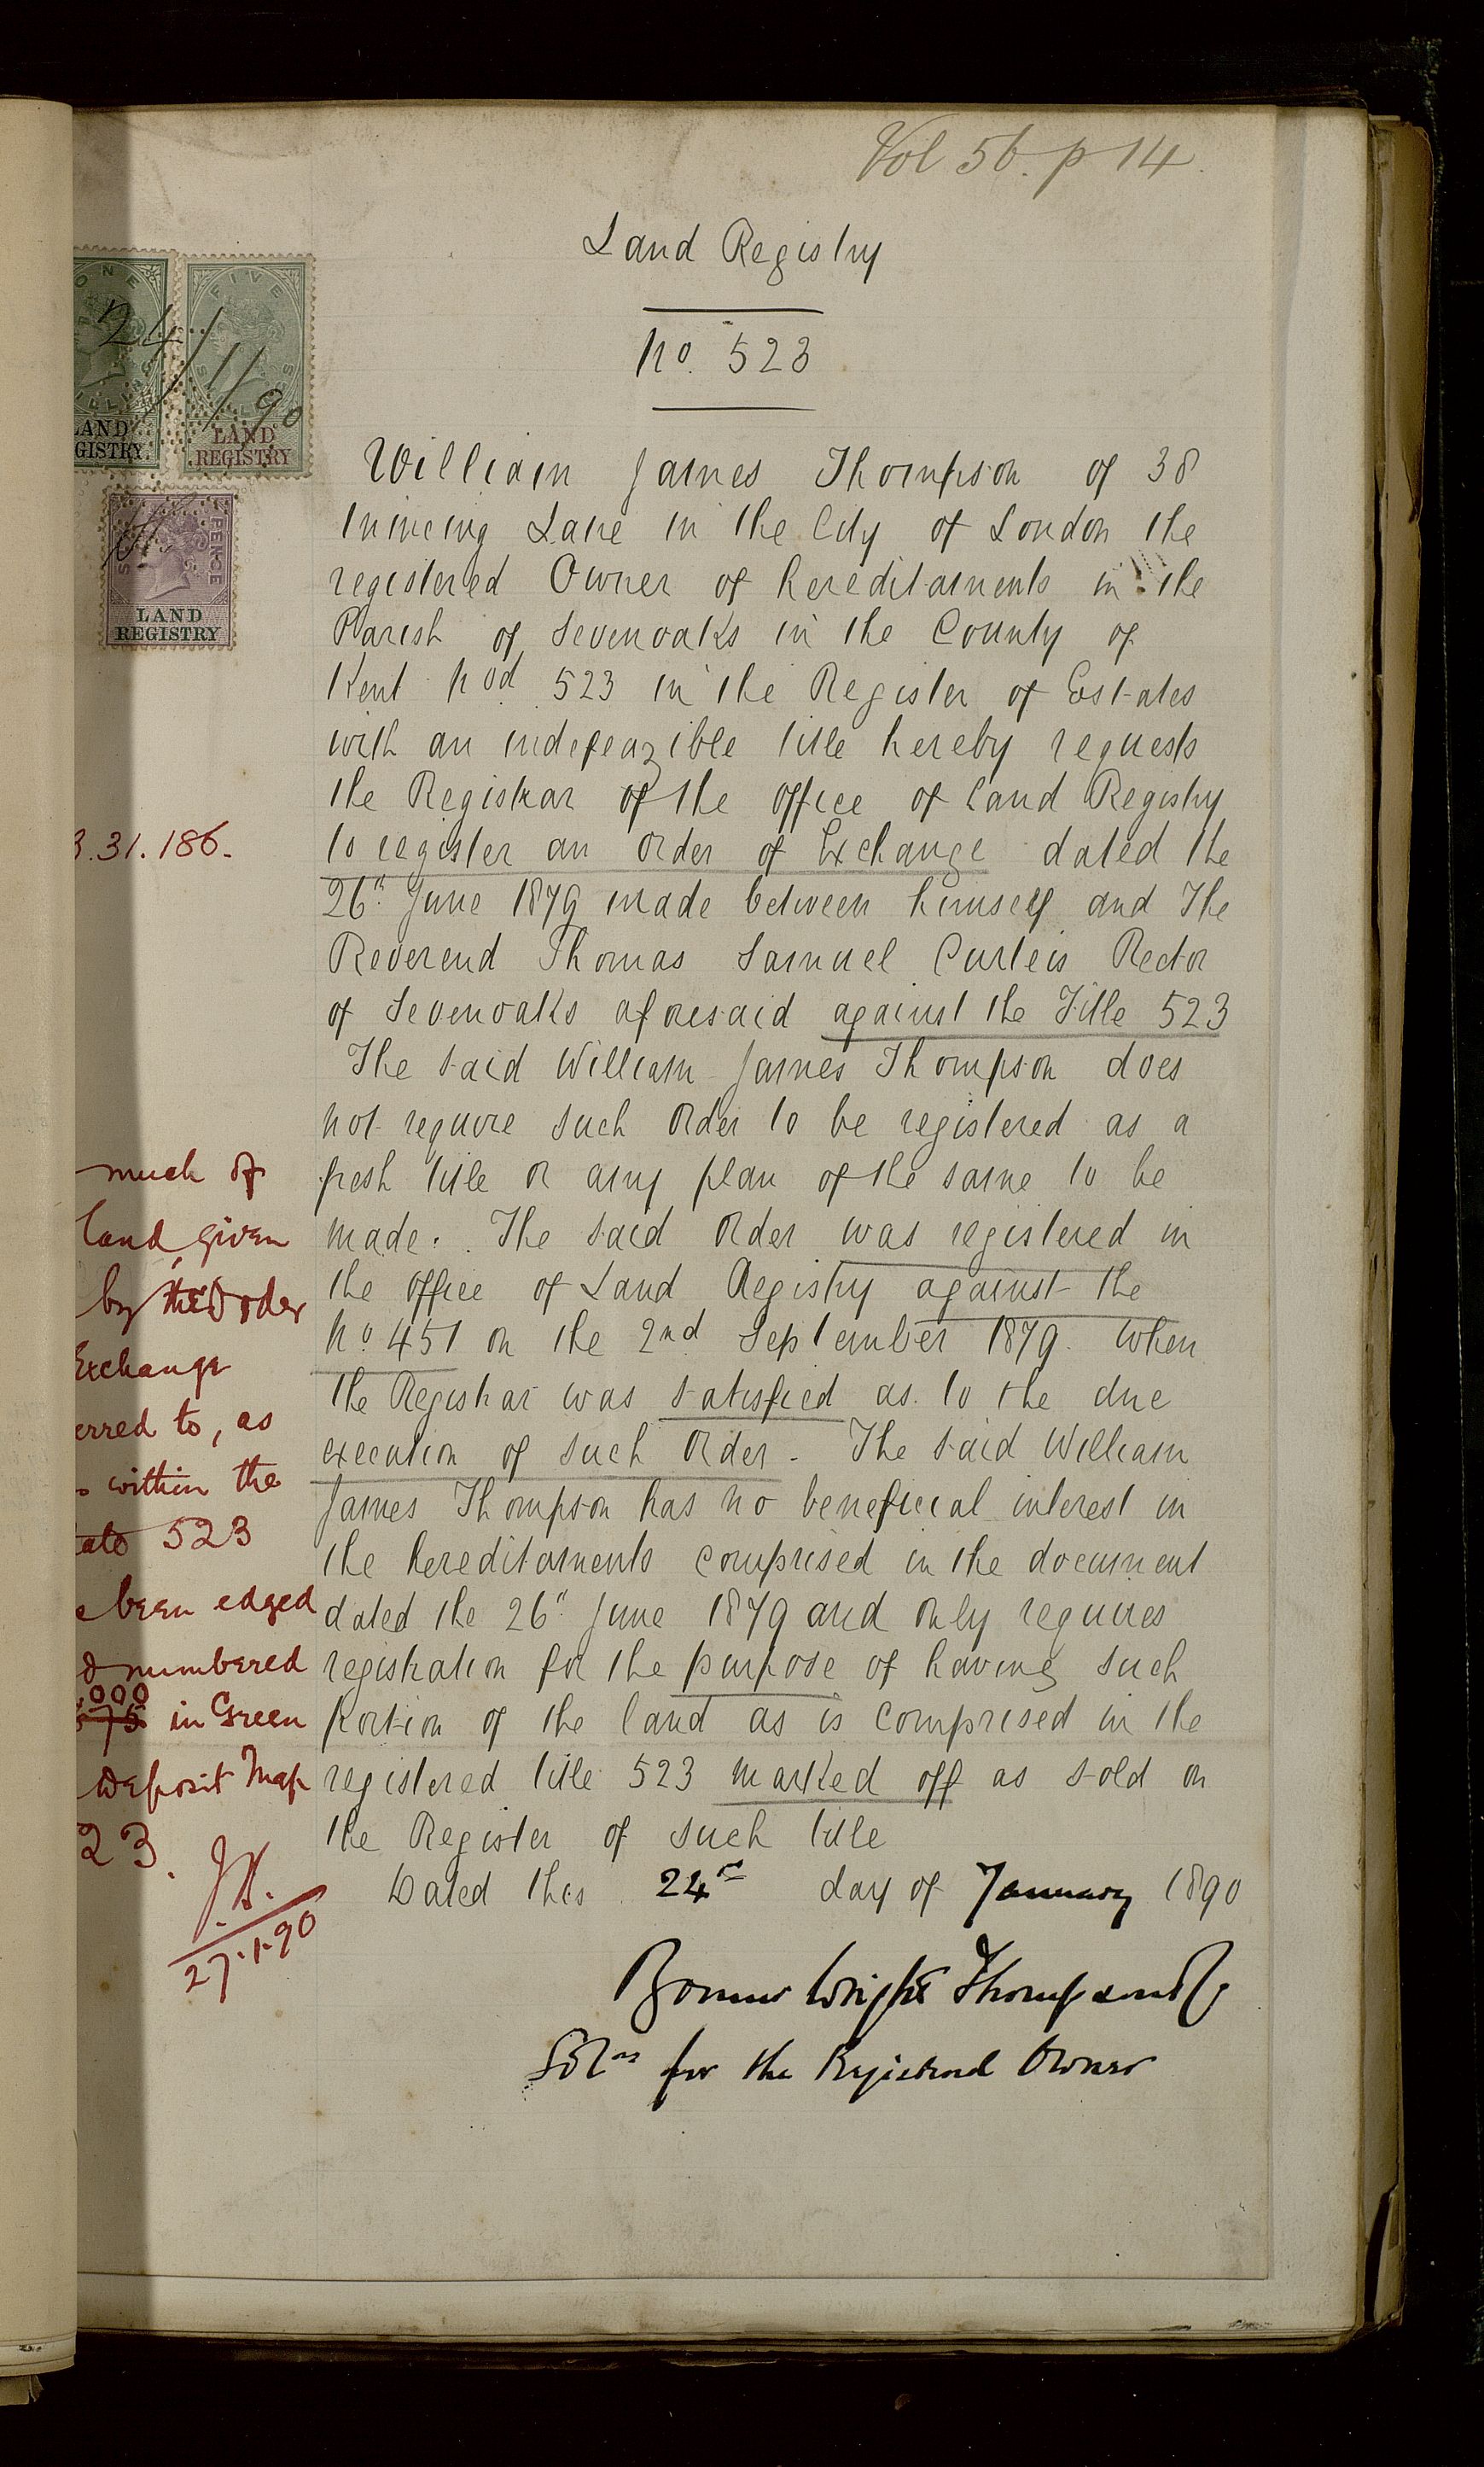 Vol 56. p 14.
Land Registry
No. 523
ONE
FIVE
24/1/90
LAND
GISTRY.
LAND
REGISTRY.
PENCE
LAND
REGISTRY
William James Thompson of 38
Mincing Lane in the City of London the
registered Owner of hereditaments in the
Parish of Sevenoaks in the County of
Kent Nod. 523 in the Register of Estates
with an indefeazible title hereby requests
the Registrar of the office of Land Registry
to register an order of Exchange dated the
26th June 1879 made between himself and The
Reverend Thomas Samuel Curteis Rector
of Sevenoaks aforesaid against the Title 523
The said William James Thompson does
not require such order to be registered as a
fresh title or any plan of the same to be
made. The said order was registered in
the office of Land Registry against the
No. 451 on the 2nd September 1879. When
the Registrar was satisfied as to the due
execution of such order. The said William
James Thompson has no beneficial interest in
the hereditaments comprised in the document
dated the 26th June 1879 and only requires
registration for the purpose of having such
portion of the land as is comprised in the
registered title 523 marked off as sold on
the Register of such title
Dated this 24th day of January 1890
Wright Thompson
Solrs for the Registered Owner
3.31.186.
much of
land given
by the Order
Exchange
erred to, as
within the
523
been edged
numbered
000
75 in Green
Deposit Map
23.
J.H.
27.1.90